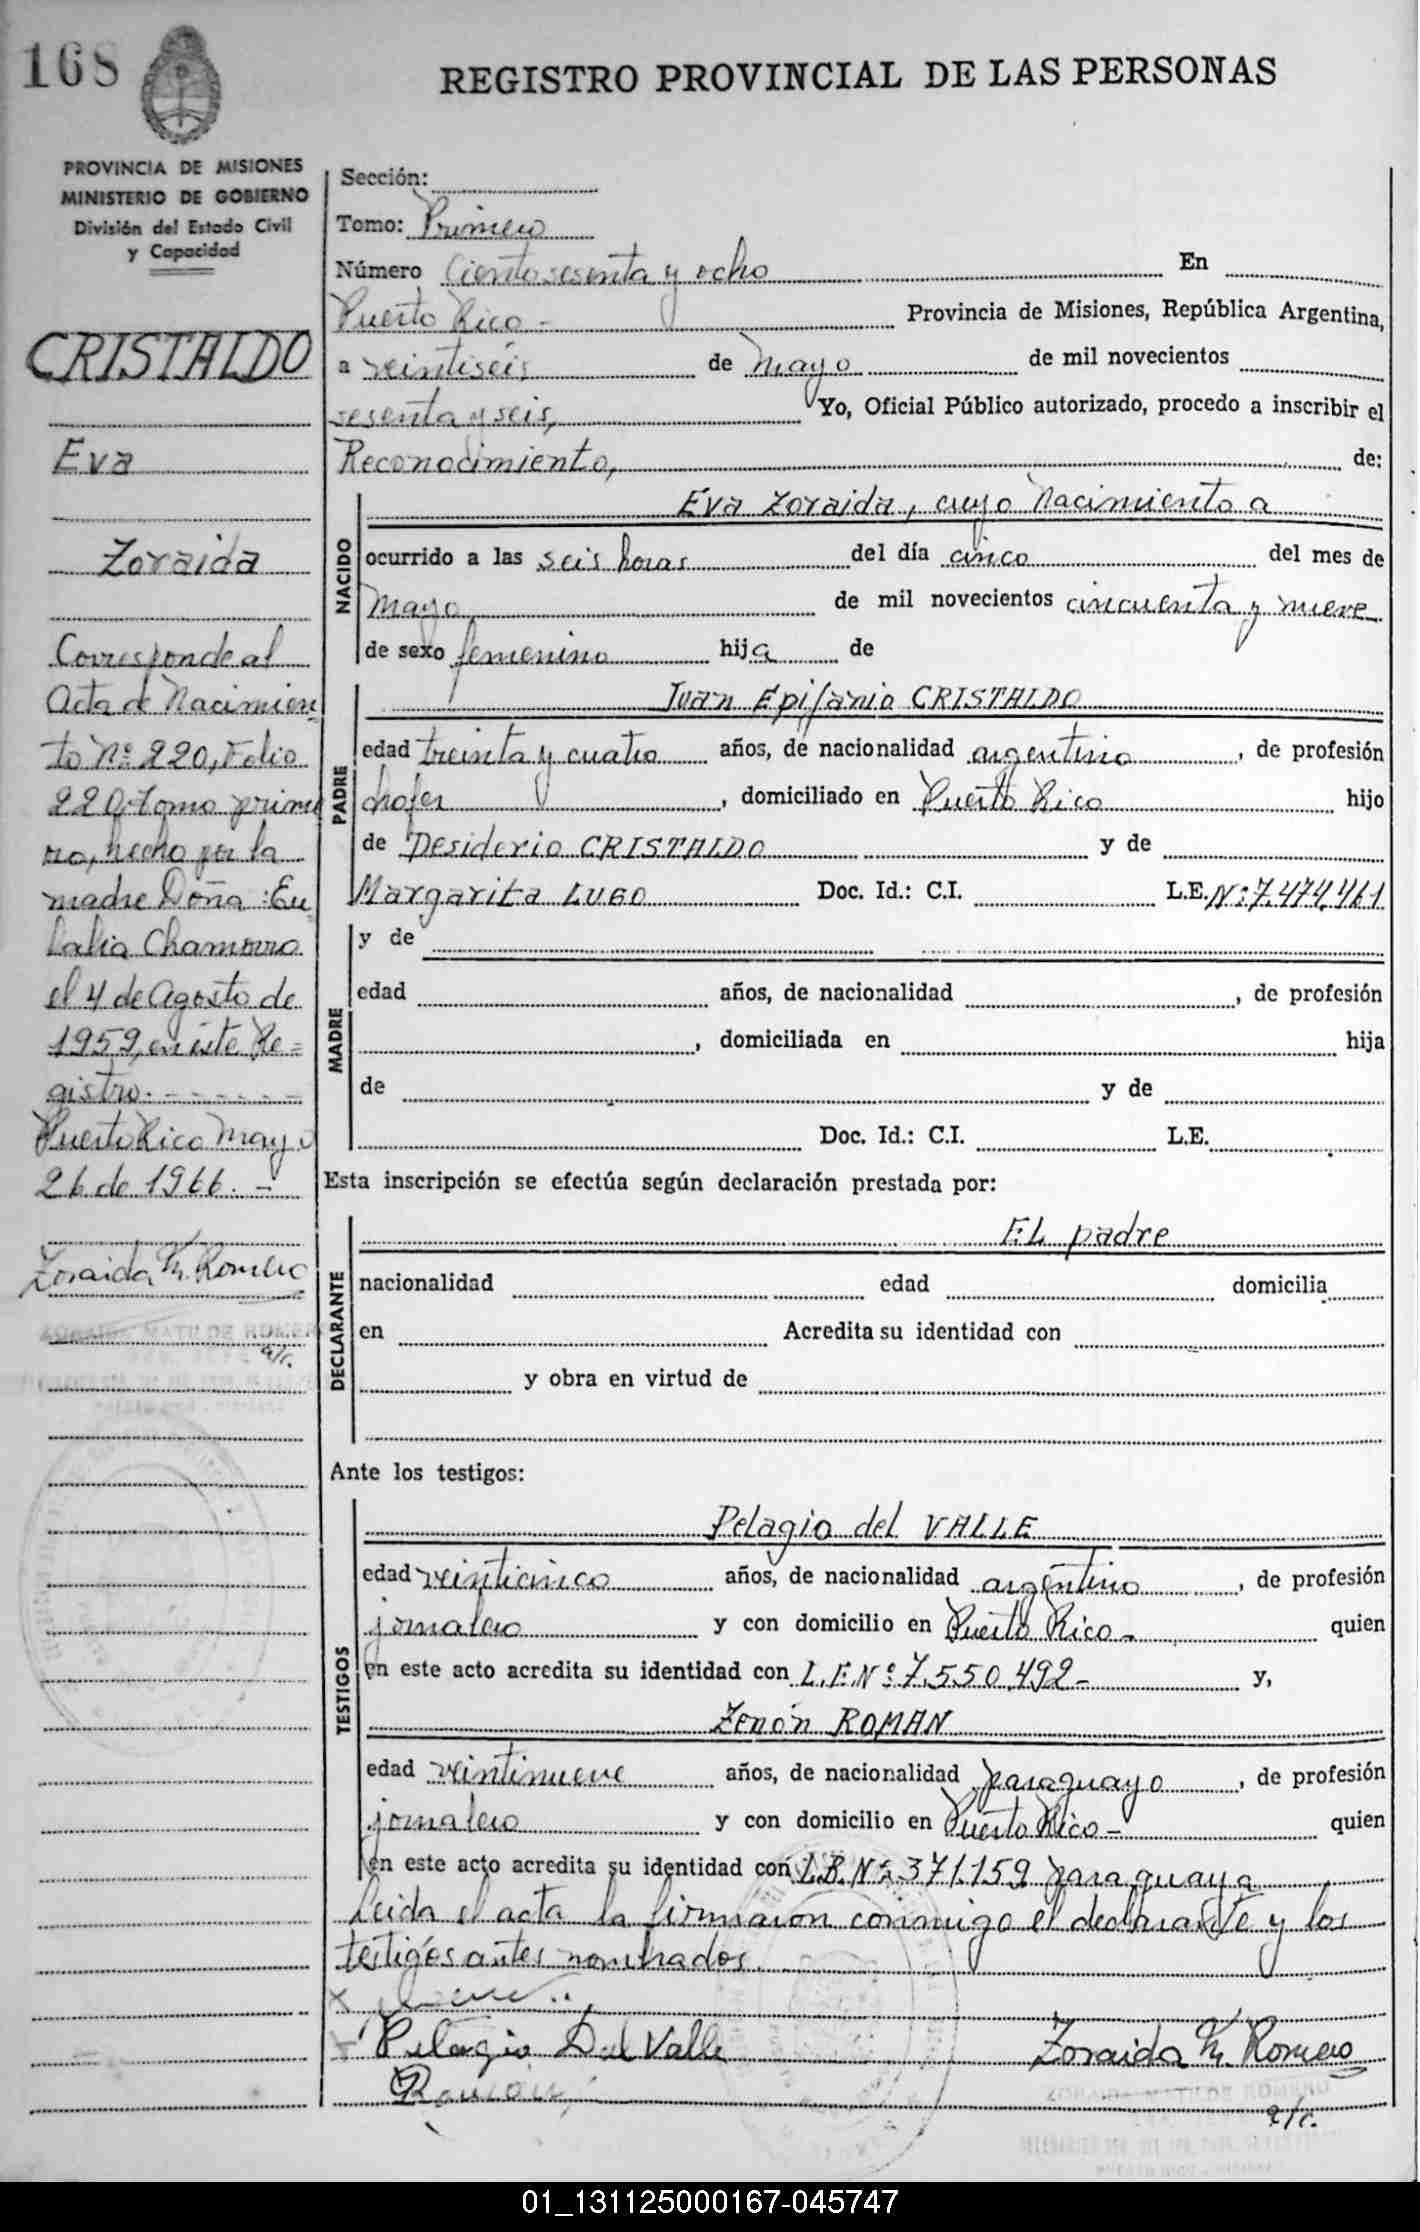 168
REGISTRO PROVINCIAL DE LAS PERSONAS
PROVINCIA DE MISIONES
MINISTERIO DE GOBIERNO
División del Estado Civil
y Capacidad
CRISTALDO
Eva
Zoraida
Corresponde al
Acta de Nacimien
to Nº 220, Folio
220, tomo prime
ro, hecho por la
madre Doña: Eu
lalia Chamorro
el 4 de Agosto de
1959, en éste Re=
gistro.-------
Puerto Rico Mayo
26 de 1966.-
Zoraida M. Romero
ZORAIDA MATILDE ROMERO
a/c.
Sección:
Tomo: Primero
Número Ciento sesenta y ocho En
Puerto Rico - Provincia de Misiones, República Argentina,
a veintiséis de Mayo de mil novecientos
sesenta y seis, Yo, Oficial Público autorizado, procedo a inscribir el
Reconocimiento, de:
NACIDO
Eva Zoraida, cuyo Nacimiento a
ocurrido a las seis horas del día cinco del mes de
Mayo de mil novecientos cincuenta y nueve
de sexo femenino hija de
PADRE
Juan Epifanio CRISTALDO
edad treinta y cuatro años, de nacionalidad argentino, de profesión
chofer, domiciliado en Puerto Rico hijo
de Desiderio CRISTALDO y de
Margarita LUGO Doc. Id.: C.I. L.E. Nº 7.474.461
MADRE
y de
edad años, de nacionalidad, de profesión
, domiciliada en hija
de y de
Doc. Id.: C.I. L.E.
Esta inscripción se efectúa según declaración prestada por:
DECLARANTE
EL padre
nacionalidad edad domicilia
en Acredita su identidad con
y obra en virtud de
Ante los testigos:
TESTIGOS
Pelagio del VALLE
edad veinticinco años, de nacionalidad argentino, de profesión
jornalero y con domicilio en Puerto Rico - quien
en este acto acredita su identidad con L.E. Nº 7.550.492- y,
Zenón ROMAN
edad veintinueve años, de nacionalidad paraguayo, de profesión
jornalero y con domicilio en Puerto Rico - quien
en este acto acredita su identidad con L.B. Nº 371.159 paraguaya
Leida el acta la firmaron conmigo el declarante y los
testigos antes nombrados.
Pelagio Del Valle
Zoraida M. Romero
Román
ZORAIDA MATILDE ROMERO
a/c.
01_131125000167-045747